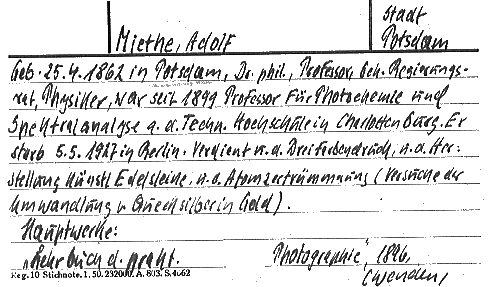 Miethe, Adolf
Stadt
Potsdam
Geb. 25.4.1862 in Potsdam, Dr. phil., Professor, Geh. Regierungs-
rat, Physiker, war seit 1899 Professor für Photochemie und
Spektralanalyse a. d. Techn. Hochschule in Charlottenburg. Er
starb 5.5.1927 in Berlin. Verdient u. d. Dreifarbendruck, u. d. Her-
stellung künstl. Edelsteine, u. d. Atomzertrümmerung (Versuche der
Umwandlung v. Quecksilber in Gold).
Hauptwerke:
„Lehrbuch d. prakt. Photographie", 1896,
(wenden)
Reg. 10 Stichnote. 1, 50. 232000. A. 803. S. 4062